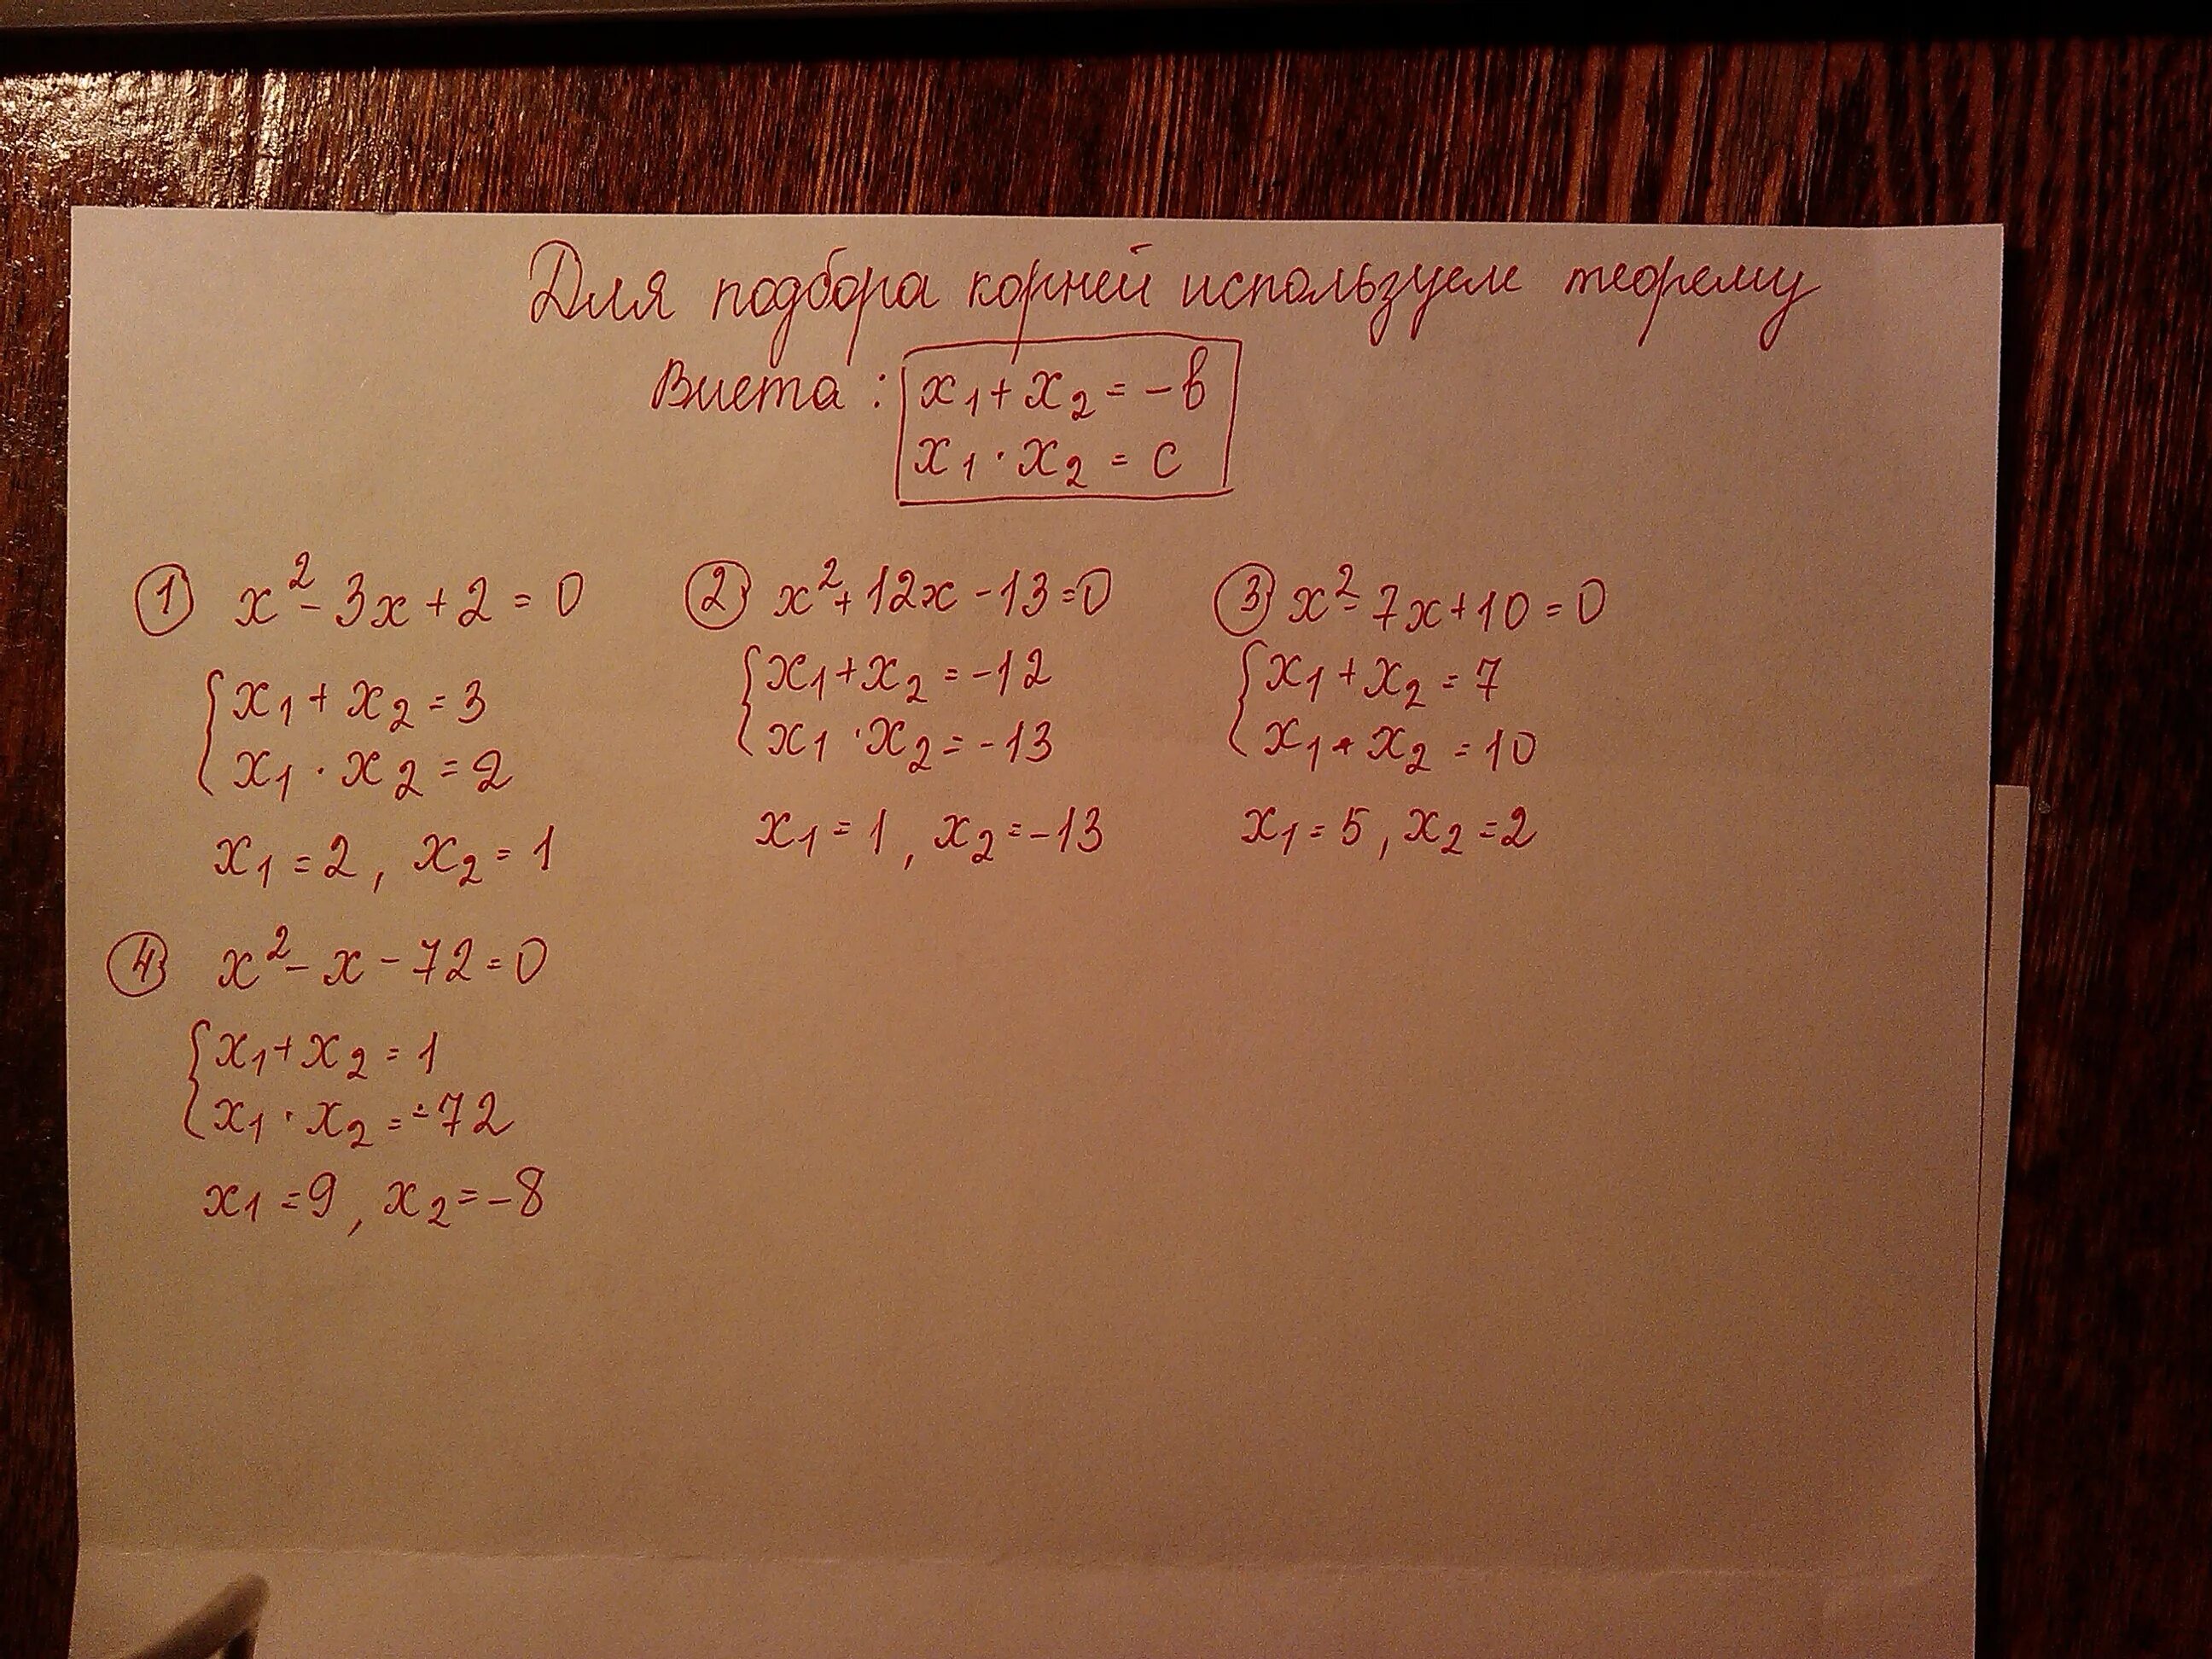 Для подбора корней используем теорему
Виета: x₁ + x₂ = -b
x₁ · x₂ = c
① x² - 3x + 2 = 0
{ x₁ + x₂ = 3
x₁ · x₂ = 2
x₁ = 2, x₂ = 1
② x² + 12x - 13 = 0
{ x₁ + x₂ = -12
x₁ · x₂ = -13
x₁ = 1, x₂ = -13
③ x² - 7x + 10 = 0
{ x₁ + x₂ = 7
x₁ · x₂ = 10
x₁ = 5, x₂ = 2
④ x² - x - 72 = 0
{ x₁ + x₂ = 1
x₁ · x₂ = -72
x₁ = 9, x₂ = -8